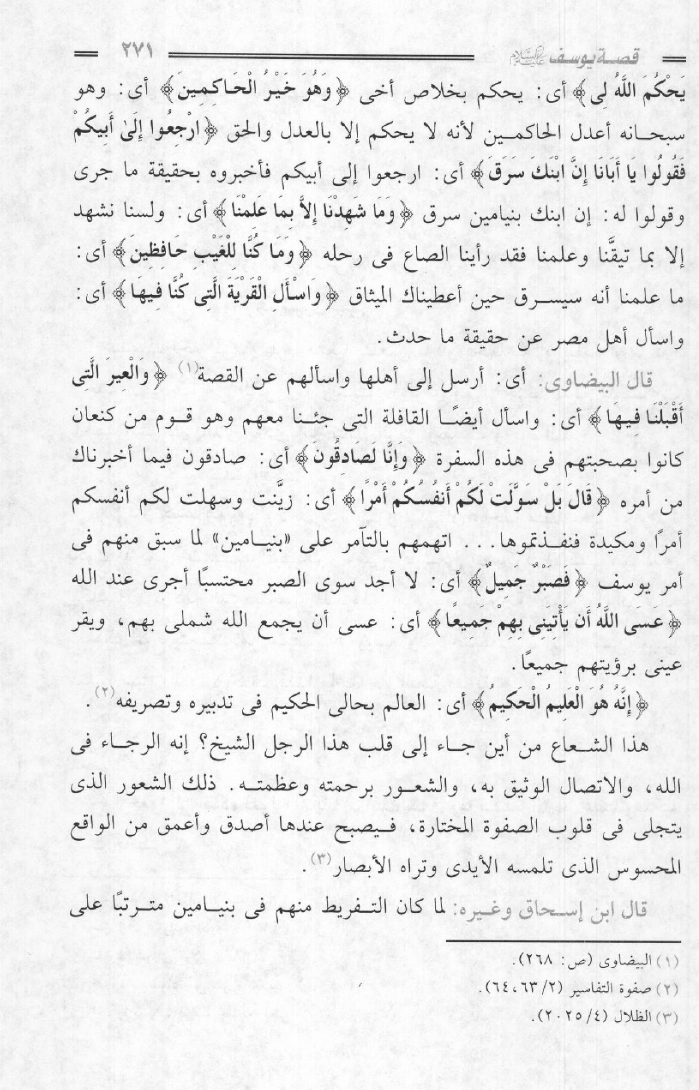 قصة يوسف عليه السلام ٢٧١
يَحْكُمَ اللَّهُ لِى﴾ أى: يحكم بخلاص أخى ﴿وَهُوَ خَيْرُ الْحَاكِمِينَ﴾ أى: وهو
سبحانه أعدل الحاكمين لأنه لا يحكم إلا بالعدل والحق ﴿ارْجِعُوا إِلَىٰ أَبِيكُمْ
فَقُولُوا يَا أَبَانَا إِنَّ ابْنَكَ سَرَقَ﴾ أى: ارجعوا إلى أبيكم فأخبروه بحقيقة ما جرى
وقولوا له: إن ابنك بنيامين سرق ﴿وَمَا شَهِدْنَا إِلاَّ بِمَا عَلِمْنَا﴾ أى: ولسنا نشهد
إلا بما تيقَّنا وعلمنا فقد رأينا الصاع فى رحله ﴿وَمَا كُنَّا لِلْغَيْبِ حَافِظِينَ﴾ أى:
ما علمنا أنه سيسرق حين أعطيناك الميثاق ﴿وَاسْأَلِ الْقَرْيَةَ الَّتِى كُنَّا فِيهَا﴾ أى:
واسأل أهل مصر عن حقيقة ما حدث.
قال البيضاوى: أى: أرسل إلى أهلها واسألهم عن القصة(١) ﴿وَالْعِيرَ الَّتِى
أَقْبَلْنَا فِيهَا﴾ أى: واسأل أيضًا القافلة التى جئنا معهم وهو قوم من كنعان
كانوا بصحبتهم فى هذه السفرة ﴿وَإِنَّا لَصَادِقُونَ﴾ أى: صادقون فيما أخبرناك
من أمره ﴿قَالَ بَلْ سَوَّلَتْ لَكُمْ أَنفُسُكُمْ أَمْرًا﴾ أى: زيَّنت وسهلت لكم أنفسكم
أمرًا ومكيدة فنفذتموها... اتهمهم بالتآمر على «بنيامين» لما سبق منهم فى
أمر يوسف ﴿فَصَبْرٌ جَمِيلٌ﴾ أى: لا أجد سوى الصبر محتسبًا أجرى عند الله
﴿عَسَى اللَّهُ أَن يَأْتِيَنِى بِهِمْ جَمِيعًا﴾ أى: عسى أن يجمع الله شملى بهم، ويقر
عينى برؤيتهم جميعًا.
﴿إِنَّهُ هُوَ الْعَلِيمُ الْحَكِيمُ﴾ أى: العالم بحالى الحكيم فى تدبيره وتصريفه(٢).
هذا الشعاع من أين جاء إلى قلب هذا الرجل الشيخ؟ إنه الرجاء فى
الله، والاتصال الوثيق به، والشعور برحمته وعظمته. ذلك الشعور الذى
يتجلى فى قلوب الصفوة المختارة، فيصبح عندها أصدق وأعمق من الواقع
المحسوس الذى تلمسه الأيدى وتراه الأبصار(٣).
قال ابن إسحاق وغيره: لما كان التفريط منهم فى بنيامين مترتبًا على
(١) البيضاوى (ص: ٢٦٨).
(٢) صفوة التفاسير (٢/ ٦٣، ٦٤).
(٣) الظلال (٤/ ٢٠٢٥).